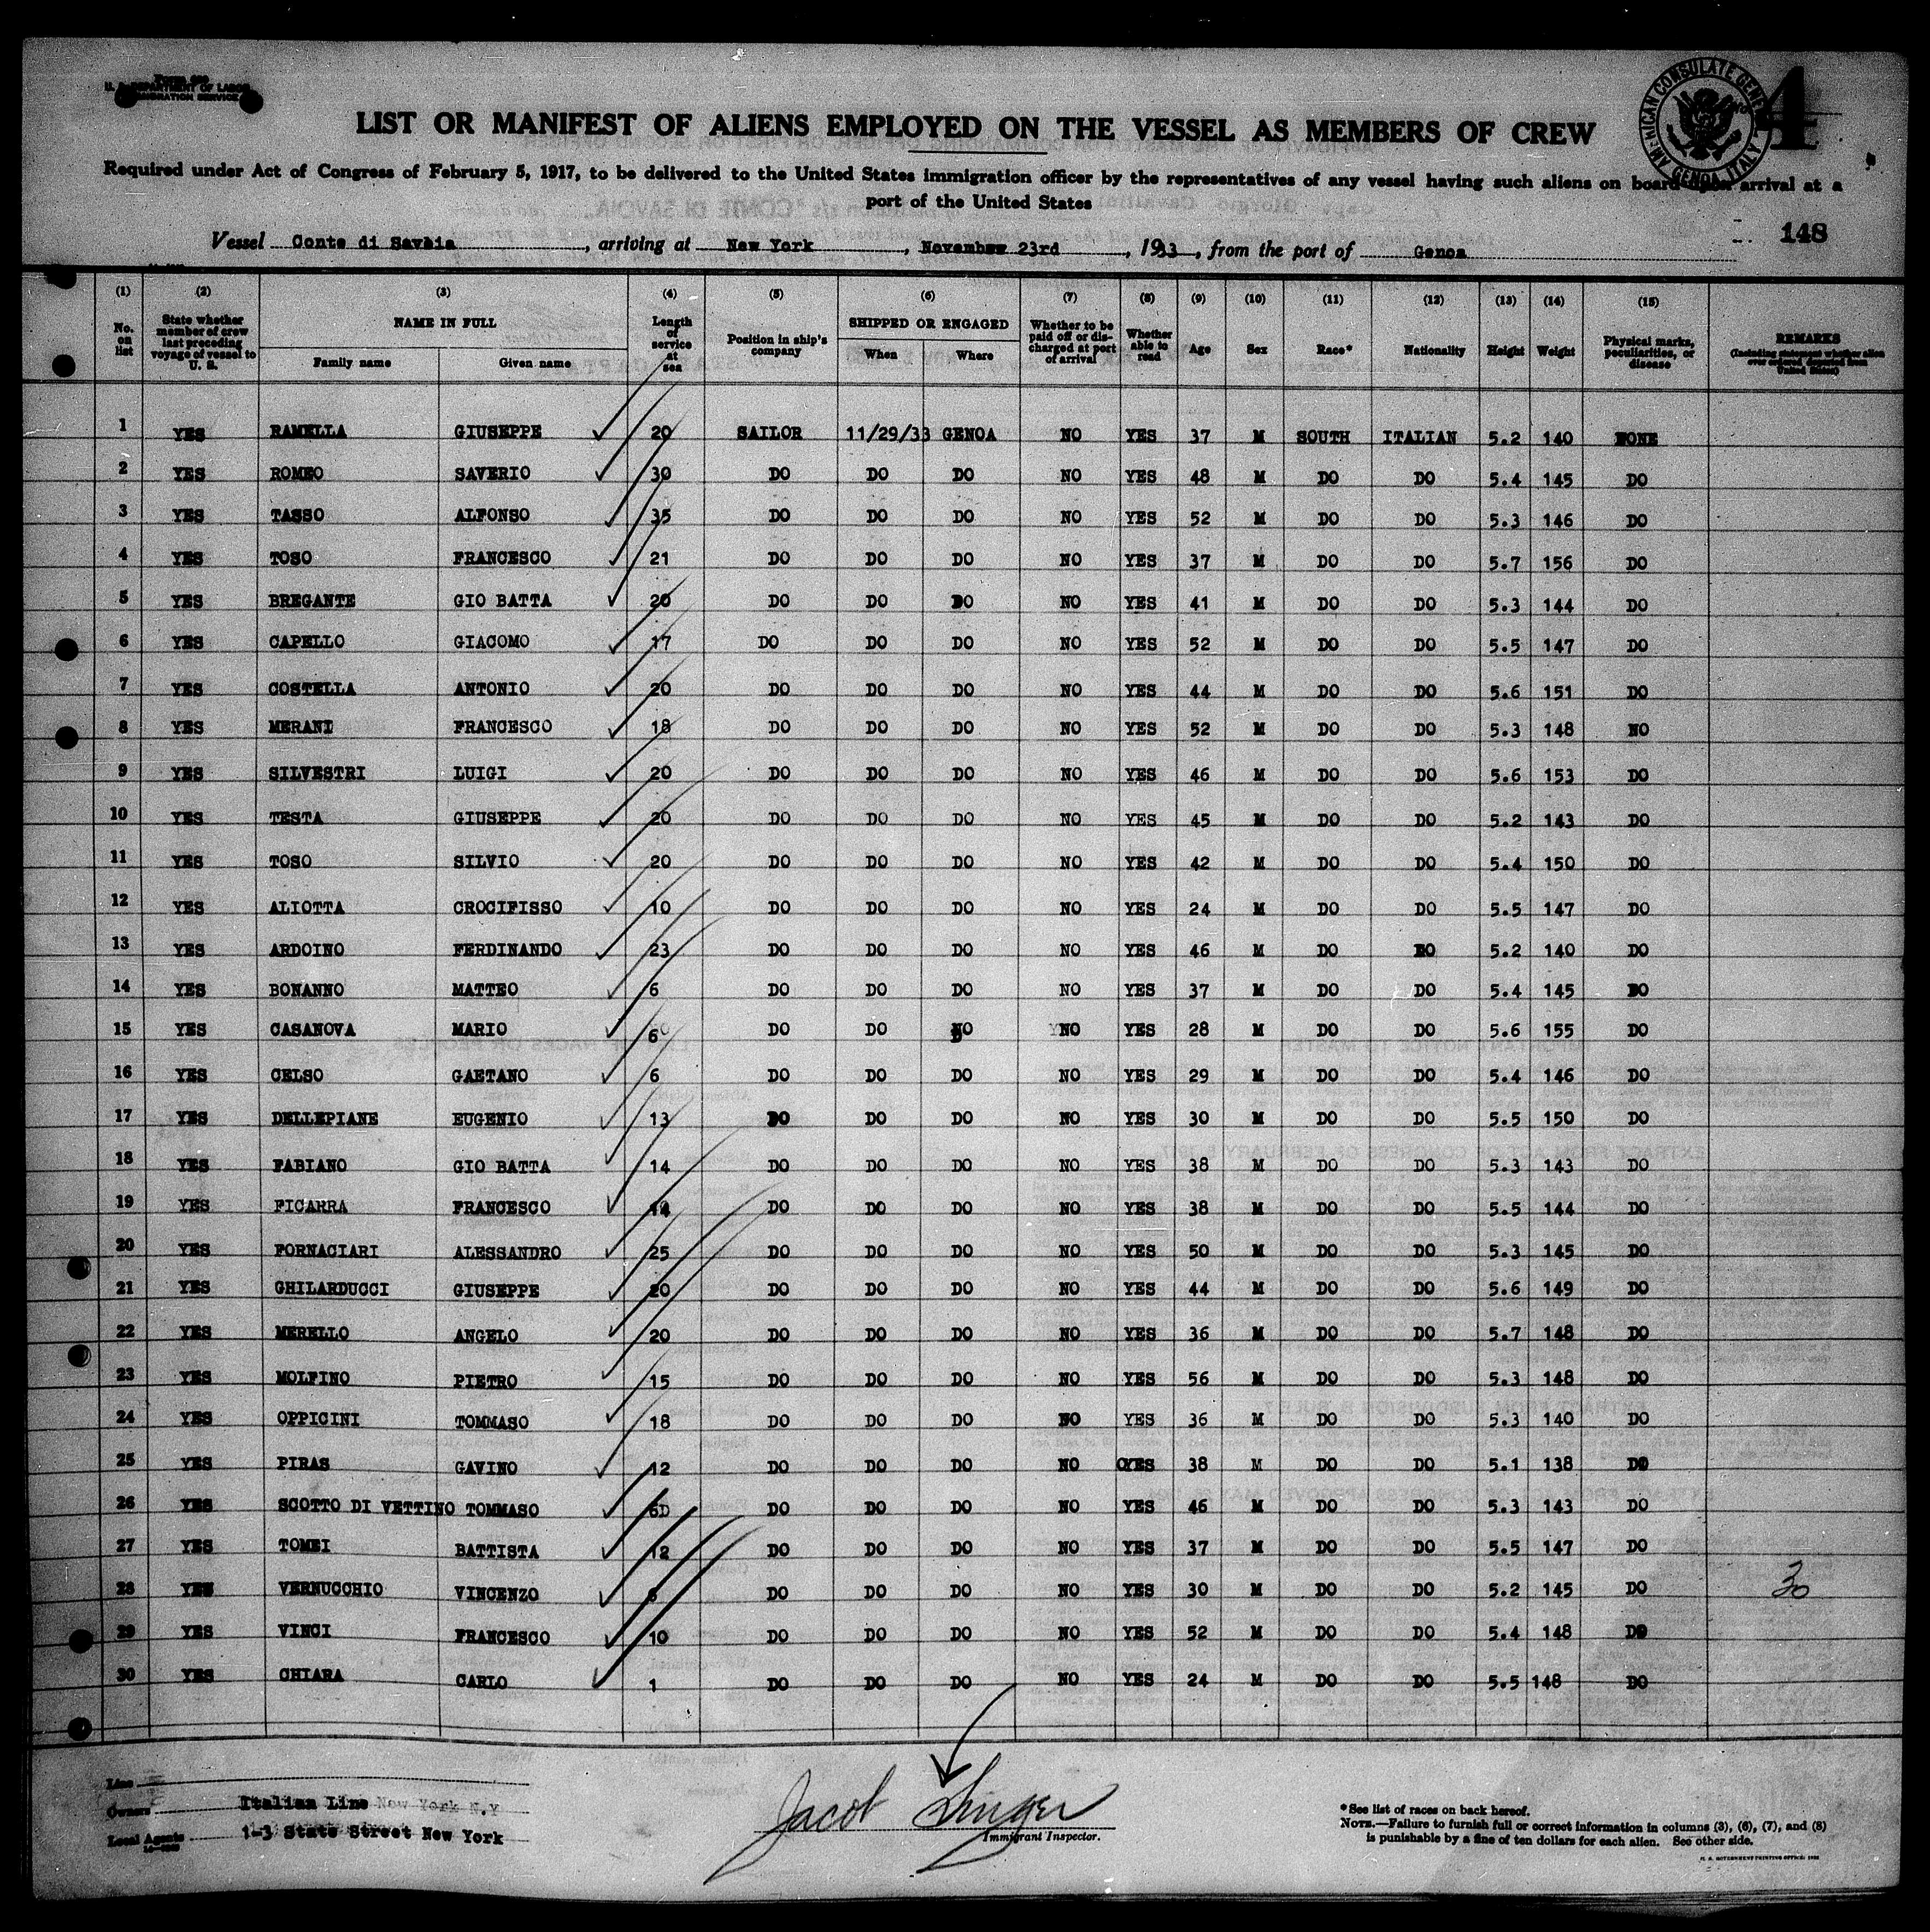 Form 680
U. S. DEPARTMENT OF LABOR
IMMIGRATION SERVICE
AMERICAN CONSULATE GENERAL
GENOA ITALY
4
LIST OR MANIFEST OF ALIENS EMPLOYED ON THE VESSEL AS MEMBERS OF CREW
Required under Act of Congress of February 5, 1917, to be delivered to the United States immigration officer by the representatives of any vessel having such aliens on board upon arrival at a
port of the United States
148
Vessel Conte di Savoia, arriving at New York, November 23rd, 1933, from the port of Genoa
(1) (2) (3) (4) (5) (6) (7) (8) (9) (10) (11) (12) (13) (14) (15)
No. on list State whether member of crew last preceding voyage of vessel to U. S. NAME IN FULL Family name Given name Length of service at sea Position in ship's company SHIPPED OR ENGAGED When Where Whether to be paid off or discharged at port of arrival Whether able to read Age Sex Race* Nationality Height Weight Physical marks, peculiarities, or disease REMARKS (Including statement whether alien ever ordered deported from United States)
1 YES RAMELLA GIUSEPPE 20 SAILOR 11/29/33 GENOA NO YES 37 M SOUTH ITALIAN 5.2 140 NONE
2 YES ROMEO SAVERIO 30 DO DO DO NO YES 48 M DO DO 5.4 145 DO
3 YES TASSO ALFONSO 35 DO DO DO NO YES 52 M DO DO 5.3 146 DO
4 YES TOSO FRANCESCO 21 DO DO DO NO YES 37 M DO DO 5.7 156 DO
5 YES BREGANTE GIO BATTA 20 DO DO DO NO YES 41 M DO DO 5.3 144 DO
6 YES CAPELLO GIACOMO 17 DO DO DO NO YES 52 M DO DO 5.5 147 DO
7 YES COSTELLA ANTONIO 20 DO DO DO NO YES 44 M DO DO 5.6 151 DO
8 YES MERANI FRANCESCO 18 DO DO DO NO YES 52 M DO DO 5.3 148 NO
9 YES SILVESTRI LUIGI 20 DO DO DO NO YES 46 M DO DO 5.6 153 DO
10 YES TESTA GIUSEPPE 20 DO DO DO NO YES 45 M DO DO 5.2 143 DO
11 YES TOSO SILVIO 20 DO DO DO NO YES 42 M DO DO 5.4 150 DO
12 YES ALIOTTA CROCIFISSO 10 DO DO DO NO YES 24 M DO DO 5.5 147 DO
13 YES ARDOINO FERDINANDO 23 DO DO DO NO YES 46 M DO DO 5.2 140 DO
14 YES BONANNO MATTEO 6 DO DO DO NO YES 37 M DO DO 5.4 145 DO
15 YES CASANOVA MARIO 6 DO DO DO NO YES 28 M DO DO 5.6 155 DO
16 YES CELSO GAETANO 6 DO DO DO NO YES 29 M DO DO 5.4 146 DO
17 YES DELLEPIANE EUGENIO 13 DO DO DO NO YES 30 M DO DO 5.5 150 DO
18 YES FABIANO GIO BATTA 14 DO DO DO NO YES 38 M DO DO 5.3 143 DO
19 YES FICARRA FRANCESCO 14 DO DO DO NO YES 38 M DO DO 5.5 144 DO
20 YES FORNACIARI ALESSANDRO 25 DO DO DO NO YES 50 M DO DO 5.3 145 DO
21 YES GHILARDUCCI GIUSEPPE 20 DO DO DO NO YES 44 M DO DO 5.6 149 DO
22 YES MERELLO ANGELO 20 DO DO DO NO YES 36 M DO DO 5.7 148 DO
23 YES MOLFINO PIETRO 15 DO DO DO NO YES 56 M DO DO 5.3 148 DO
24 YES OPPICINI TOMMASO 18 DO DO DO NO YES 36 M DO DO 5.3 140 DO
25 YES PIRAS GAVINO 12 DO DO DO NO YES 38 M DO DO 5.1 138 DO
26 YES SCOTTO DI VETTINO TOMMASO DO DO DO NO YES 46 M DO DO 5.3 143 DO
27 YES TOMEI BATTISTA 12 DO DO DO NO YES 37 M DO DO 5.5 147 DO
28 YES VERNUCCHIO VINCENZO 6 DO DO DO NO YES 30 M DO DO 5.2 145 DO 30
29 YES VINCI FRANCESCO 10 DO DO DO NO YES 52 M DO DO 5.4 148 DO
30 YES CHIARA CARLO 1 DO DO DO NO YES 24 M DO DO 5.5 148 DO
Line
Owners Italian Line New York N.Y
Local Agents 1-3 State Street New York
Jacob Singer
Immigrant Inspector.
*See list of races on back hereof.
NOTE.—Failure to furnish full or correct information in columns (3), (6), (7), and (8)
is punishable by a fine of ten dollars for each alien. See other side.
U. S. GOVERNMENT PRINTING OFFICE: